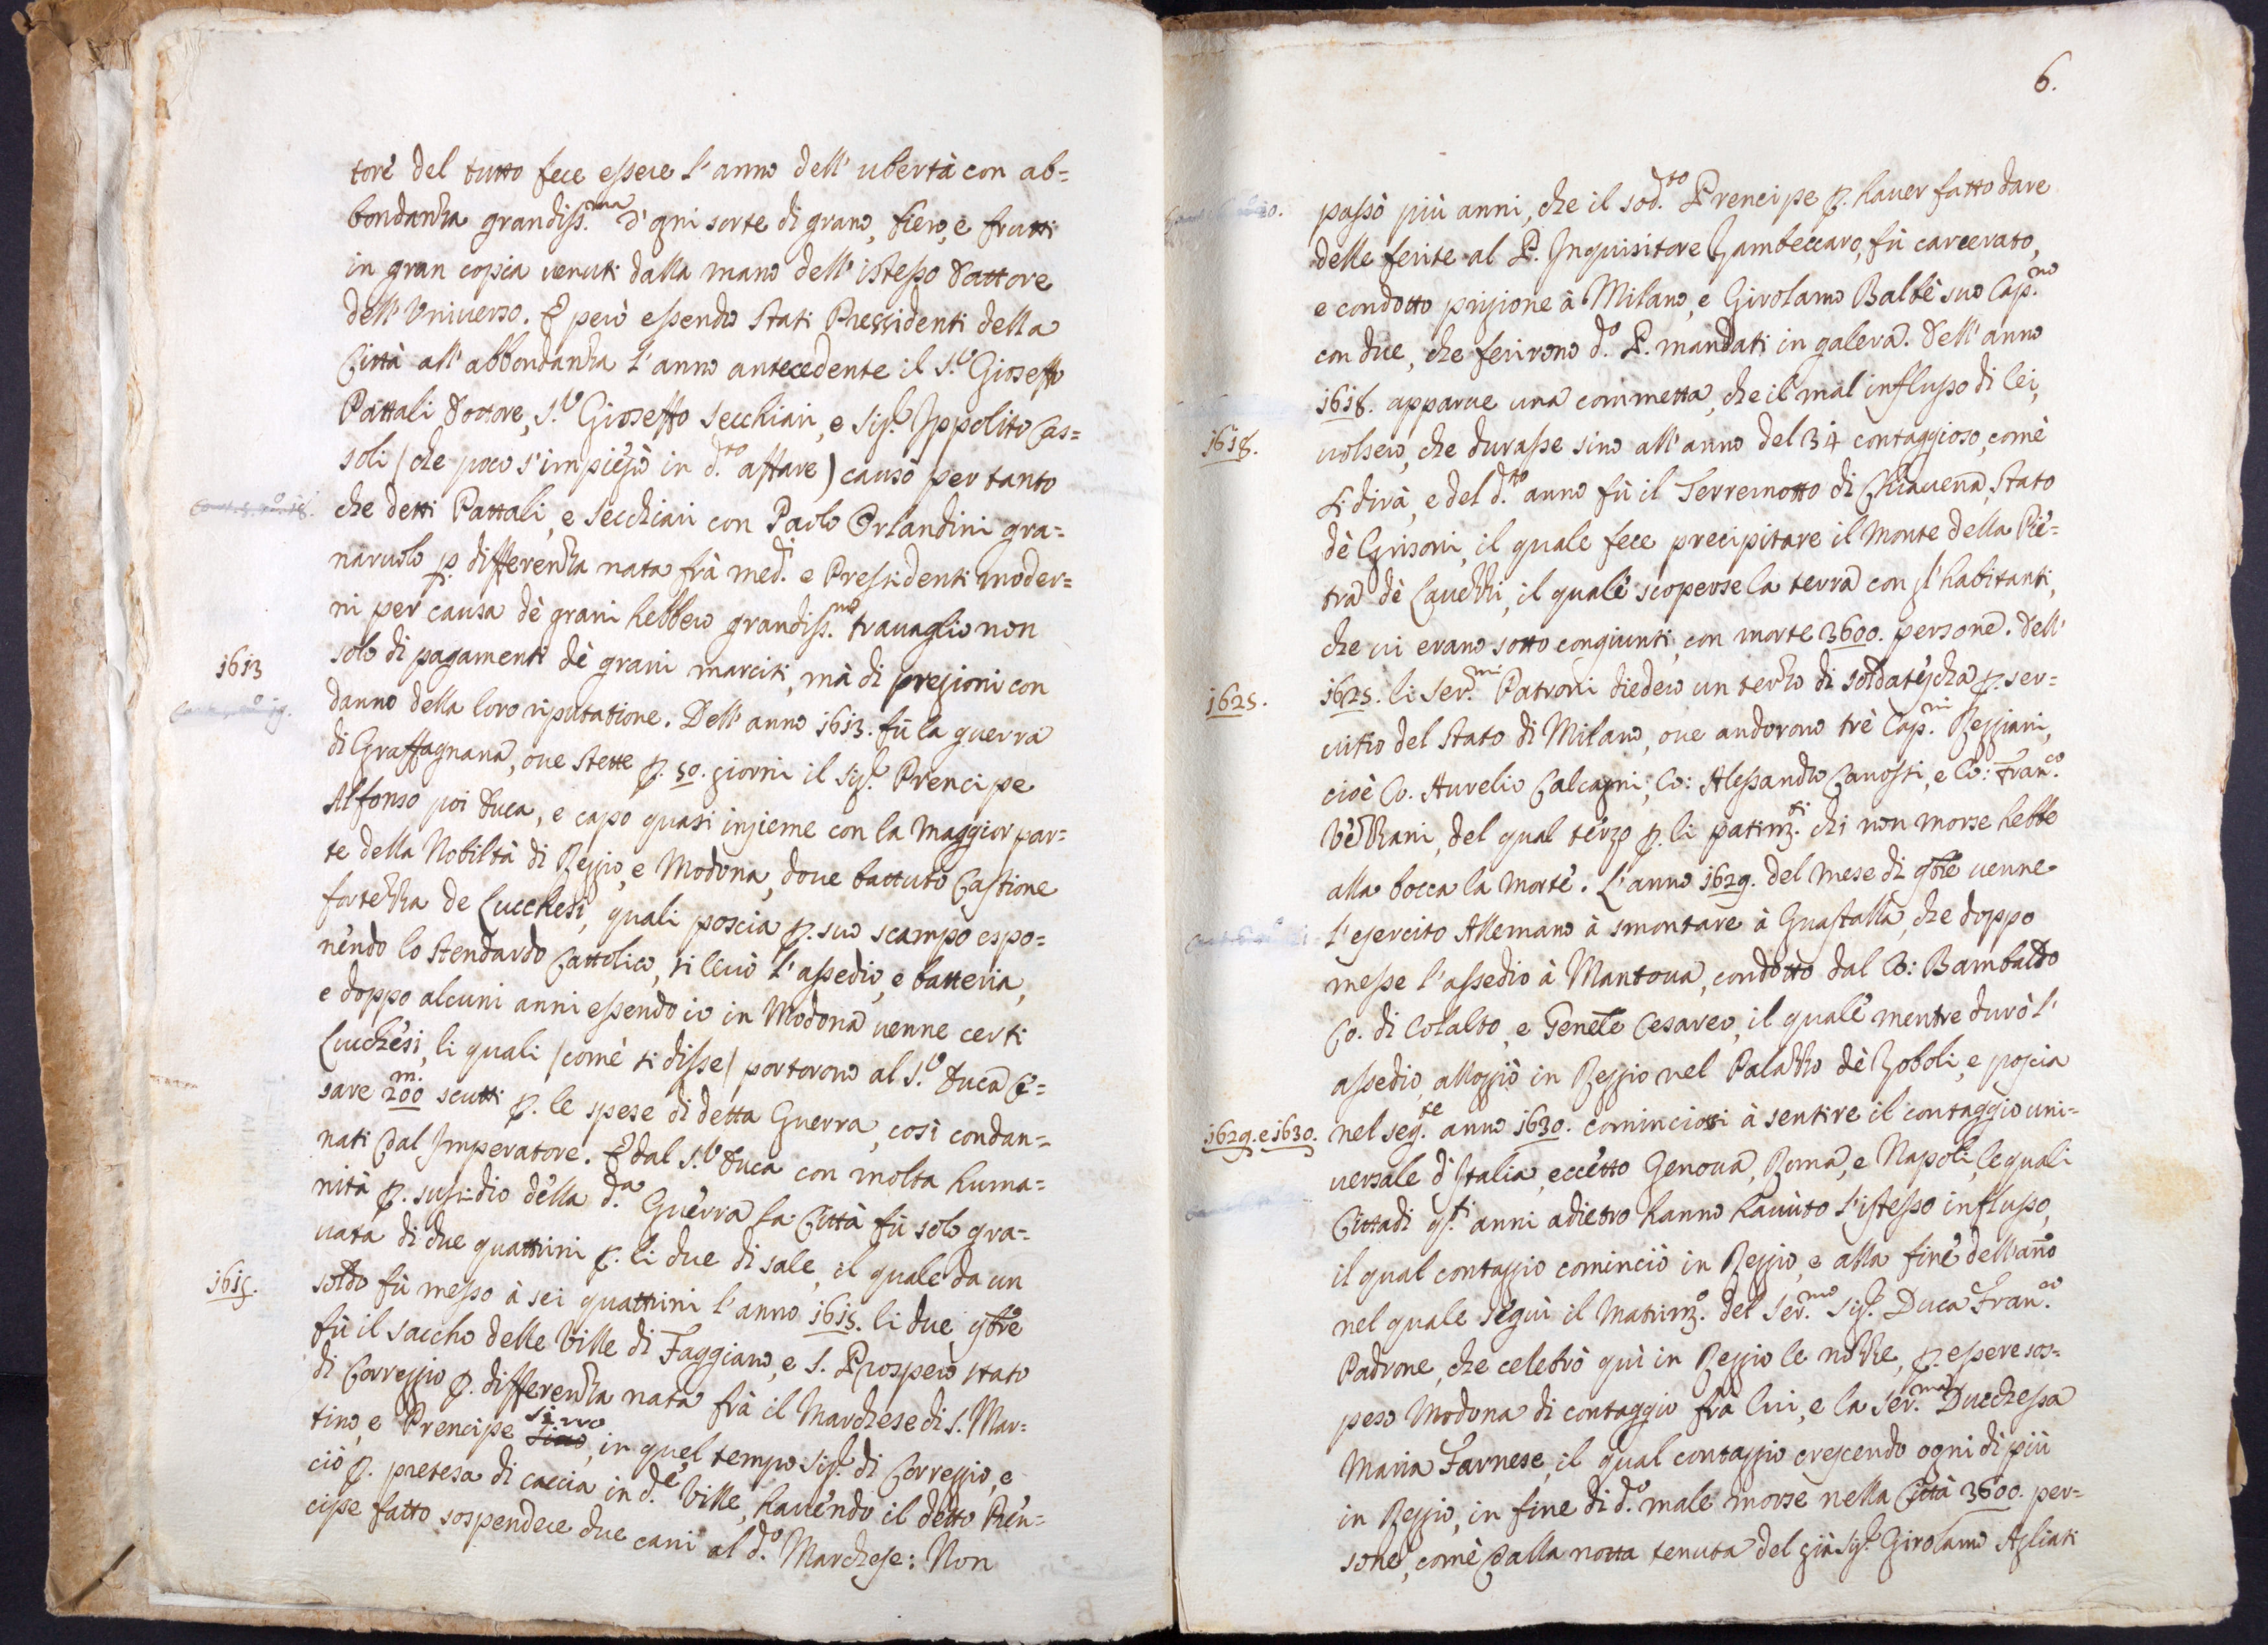 torè del tutto fece essere l'anno dell'ubertà con ab=
bondanza grandiss.ma d'ogni sorte di grano, fieno, e frutti
in gran copia venuti dalla mano dell'istesso Fattore
dell'Universo. E però essendo stati Pressidenti della
Città all'abbondanza l'anno antecedente il S.r Gioseffo
Pattali Dottore, S.r Gioseffo Secchiari, e Sig.r Ippolito Cas=
soli (che poco s'impiegò in d.to affare) causò per tanto
che detti Pattali, e Secchiari con Paolo Orlandini gra=
naruolo p. differenza nata frà med.i e Pressidenti moder=
ni per causa dè grani hebbero grandiss.mo travaglio non
solo di pagamenti dè grani marciti, mà di pregioni con
1613
danno della loro riputatione. Dell'anno 1613. fù la guerra
di Graffagnana, ove stette p. 50. giorni il Sig.r Prencipe
Alfonso poi Duca, e capo quasi insieme con la maggior par=
te della Nobiltà di Reggio, e Modona, dove battuto Castione
fortezza de Lucchesi, quali poscia p. suo scampo espo=
nendo lo stendardo Cattolico, si levò l'assedio, e batteria,
e doppo alcuni anni essendo io in Modona venne certi
Lucchesi, li quali (comè si disse) portorono al S.r Duca Ce=
sare 200 m. scutti p. le spese di detta Guerra, così condan=
nati dal Imperatore. E dal S.r Duca con molta huma=
nità p. susidio della d.a Guerra la Città fù solo gra=
vata di due quattrini p. li due di sale, il quale da un
1615.
soldo fù messo à sei quattrini l'anno 1615. li due 9bre
fù il saccho delle Ville di Faggiano, e S. Prospero stato
di Correggio p. differenza nata frà il Marchese di S. Mar=
tino, e Prencipe Sirro, in quel tempo Sig.r di Correggio, e
ciò p. pretesa di caccia in d.e Ville, havendo il detto Pren=
cipe fatto sospendere due cani al d.o Marchese: Non
6.
passò più anni, che il sod.to Prencipe p. haver fatto dare
delle ferite al P. Inquisitore Zambeccaro, fù carcerato,
e condotto prigione à Milano, e Girolamo Balbè suo Cap.no
con due, che ferirono d.o P. mandati in galera. Dell'anno
1618. apparve una commetta, che il mal influsso di lei,
1618.
volsero, che durasse sino all'anno del 34 contaggioso, comè
si dirà, e del d.to anno fù il Terremotto di Chiavena, Stato
dè Grisoni, il quale fece precipitare il Monte della Pie=
tra dè Lavezzi, il qualè scoperse la terra con gl'habitanti,
che vi erano sotto congiunti, con morte 3600. persone. Dell'
1625.
1625. li Ser.mi Patroni diedero un terzo di soldatescha p. ser=
vitio del Stato di Milano, ove andorono trè Cap.ni Reggiani,
cioè Co. Aurelio Calcagni; Co: Alessandro Canossi, e Co: Fran.co
Vezzani, del qual terzo p. li patim.ti chi non morse hebbe
alla bocca la morte. L'anno 1629. del mese di 9bre venne
l'esercito Allemano à smontare à Guastalla, che doppo
messe l'assedio à Mantova, condotto dal Co: Rambaldo
Co. di Colalto, e Genele Cesareo, il qualè mentre durò l'
assedio, alloggiò in Reggio nel Palazzo dè Zoboli, e poscia
1629. e 1630.
nel seg.te anno 1630. cominciossi à sentire il contaggio uni=
versale d'Italia, eccetto Genova, Roma, e Napoli, le quali
Cittadi q.sti anni adietro hanno havuto l'istesso influsso,
il qual contaggio cominciò in Reggio, e alla finè dell'ano
nel quale seguì il Matrim.o del Ser.mo Sig.r Duca Fran.co
Padrone, che celebrò quì in Reggio le nozze, p. essere sos=
peso Modona di contaggio frà lui, e la Ser.ma Duchessa
Maria Farnese, il qual contaggio crescendo ogni dì più
in Reggio, in fine di d.o male morse nella Città 3600. per=
sone, comè dalla notta tenuta del già Sig.r Girolamo Agliati